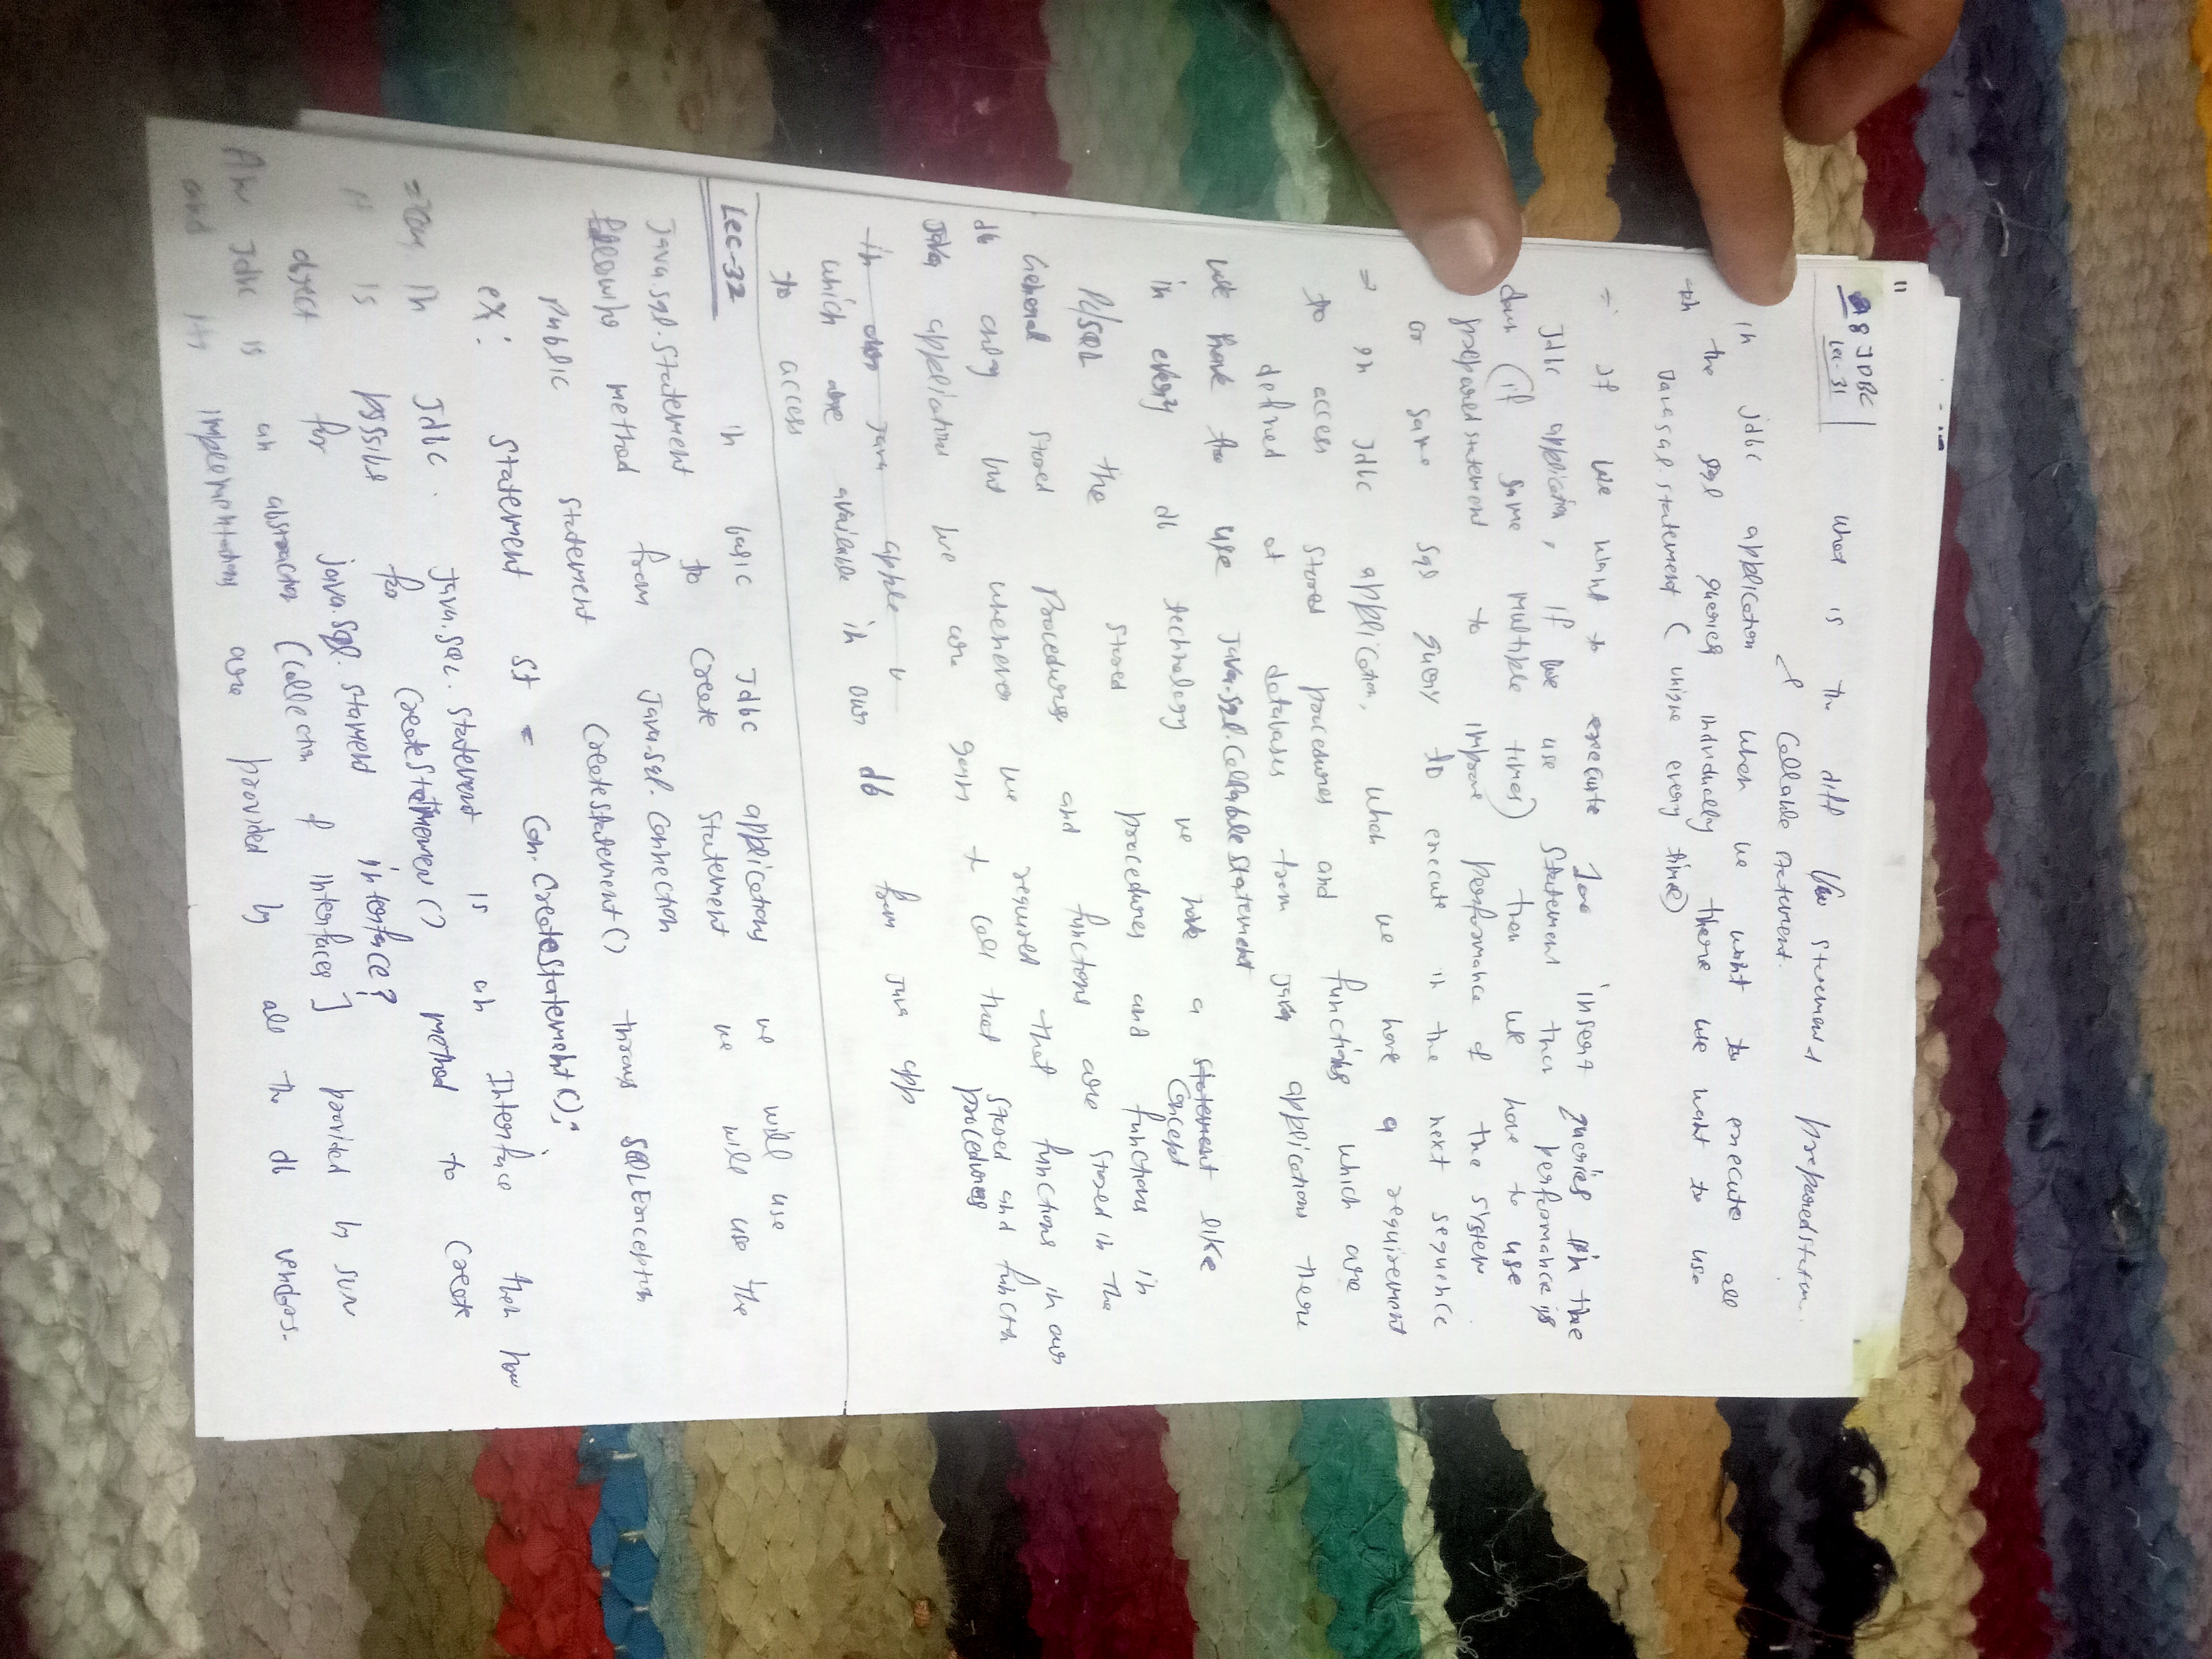 11
8 JDBC
Lec-31
What is the diff b/w statement preparedstatem
& Callable statement.
in jdbc application when we want to execute all
the sql queries individually there we want to use
Java.sql.statement ( unique every time)
If we want to execute 100 insert queries in the
Jdbc application, if we use statement then performance is
down (if same multiple times) then we have to use
prepared statement to improve performance of the system
or same sql query to execute in the next sequence
⇒ In Jdbc application, when we have a requirement
to access stored procedures and functions which are
defined at databases from java applications there
we have to use Java.sql.CallableStatement
in every db technology we have a statement like
Concept
PL/SQL the stored procedures and functions in
General stored Procedures and functions are stored in the
db only but whenever we required that functions in our
Java applications we are going to call that stored and function
procedures
in our java apple
which are available in our db from java app
to access
Lec-32 in basic Jdbc applications we will use
Java.sql.statement to create statement we will use the
following method from Java.sql.Connection
Public statement createstatement() throws SQLException
ex: Statement st = Con.CreateStatement();
in Jdbc. Java.SQL.statement is an Interface then how
it is possible for method to create
object for java.sql.stament interface?
Jdbc is an abstraction (collection of interfaces] provided by SUN
and its implementations are provided by all the db vendors.